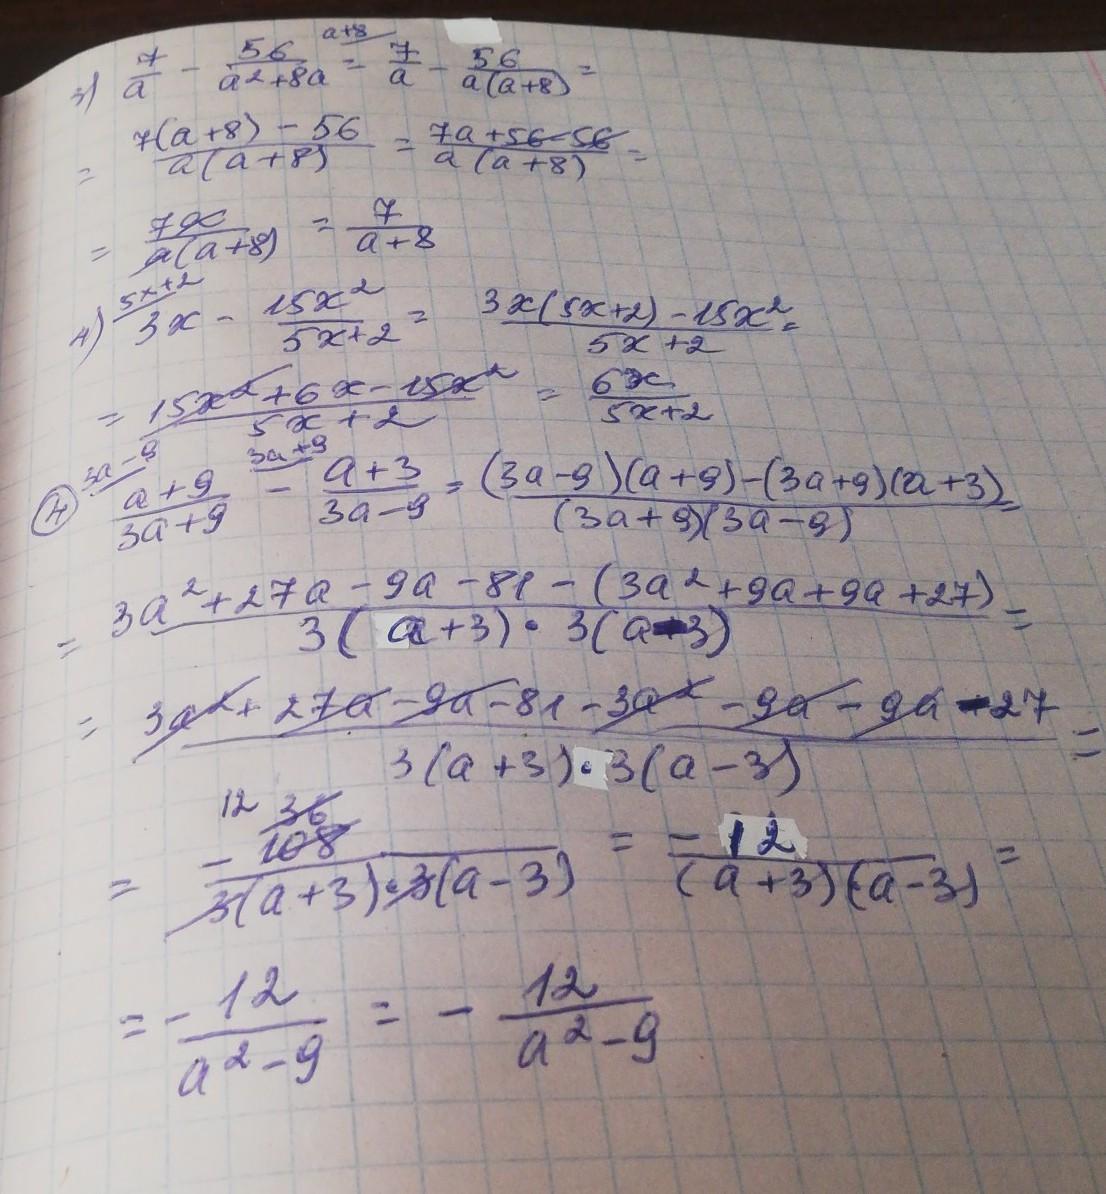 3) 7/a - 56/(a²+8a) ^(a+8) = 7/a - 56/(a(a+8)) =
= (7(a+8) - 56)/(a(a+8)) = (7a+56-56)/(a(a+8)) =
= 7a/(a(a+8)) = 7/(a+8)
4) ^(5x+2) 3x - 15x²/(5x+2) = (3x(5x+2) - 15x²)/(5x+2) =
= (15x²+6x-15x²)/(5x+2) = 6x/(5x+2)
④ ^(3a-9) (a+9)/(3a+9) - ^(3a+9) (a+3)/(3a-9) = ((3a-9)(a+9)-(3a+9)(a+3))/((3a+9)(3a-9)) =
= (3a²+27a-9a-81-(3a²+9a+9a+27))/(3(a+3)·3(a-3)) =
= (3a²+27a-9a-81-3a²-9a-9a-27)/(3(a+3)·3(a-3)) =
12 36
= -108/(3(a+3)·3(a-3)) = -12/((a+3)(a-3)) =
= -12/(a²-9) = - 12/(a²-9)